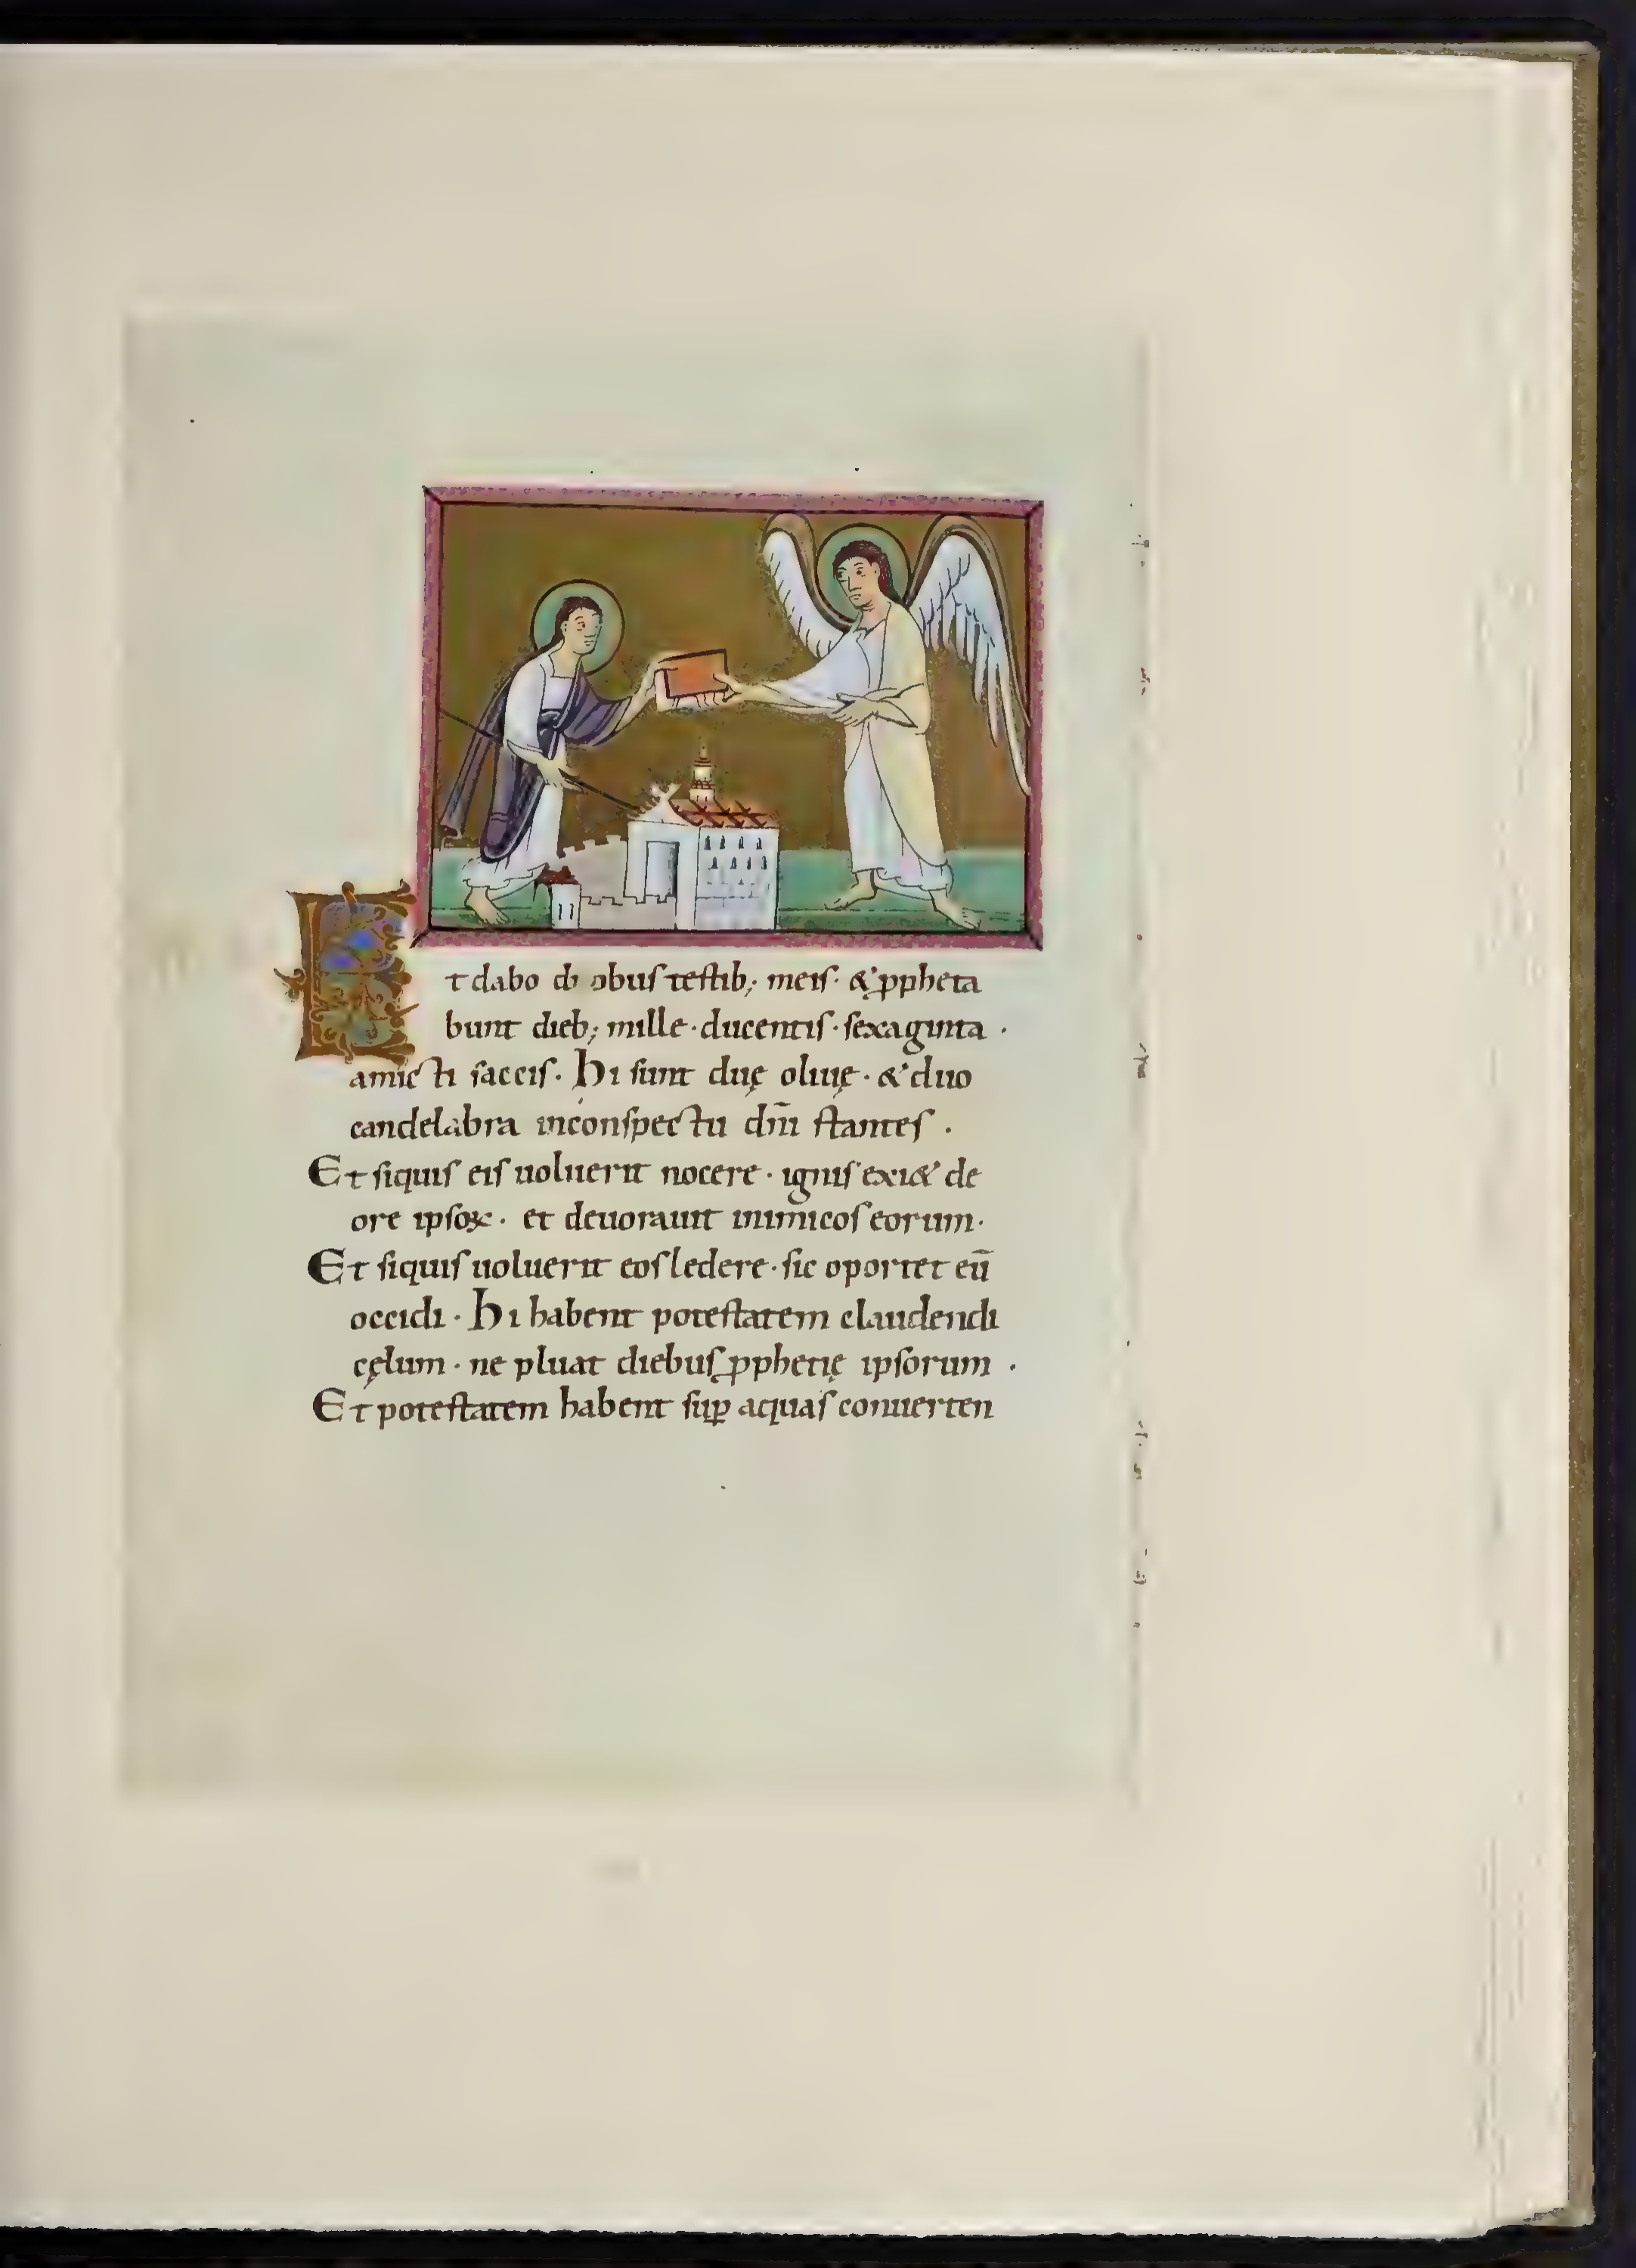 Et dabo duobus testib; meis· &ꝓpheta
bunt dieb; mille·ducentis·sexaginta·
amicti saccis· Hi sunt duę oliuę·&duo
candelabra inconspectu dn̄i stantes·
Et siquis eis uoluerit nocere·ignis exi& de
ore ipsoꝝ·et deuorauit inimicos eorum·
Et siquis uoluerit eos ledere·sic oportet eū
occidi·Hi habent potestatem claudendi
cęlum·ne pluat diebus ꝓphetię ipsorum·
Et potestatem habent suꝑ aquas conuerten